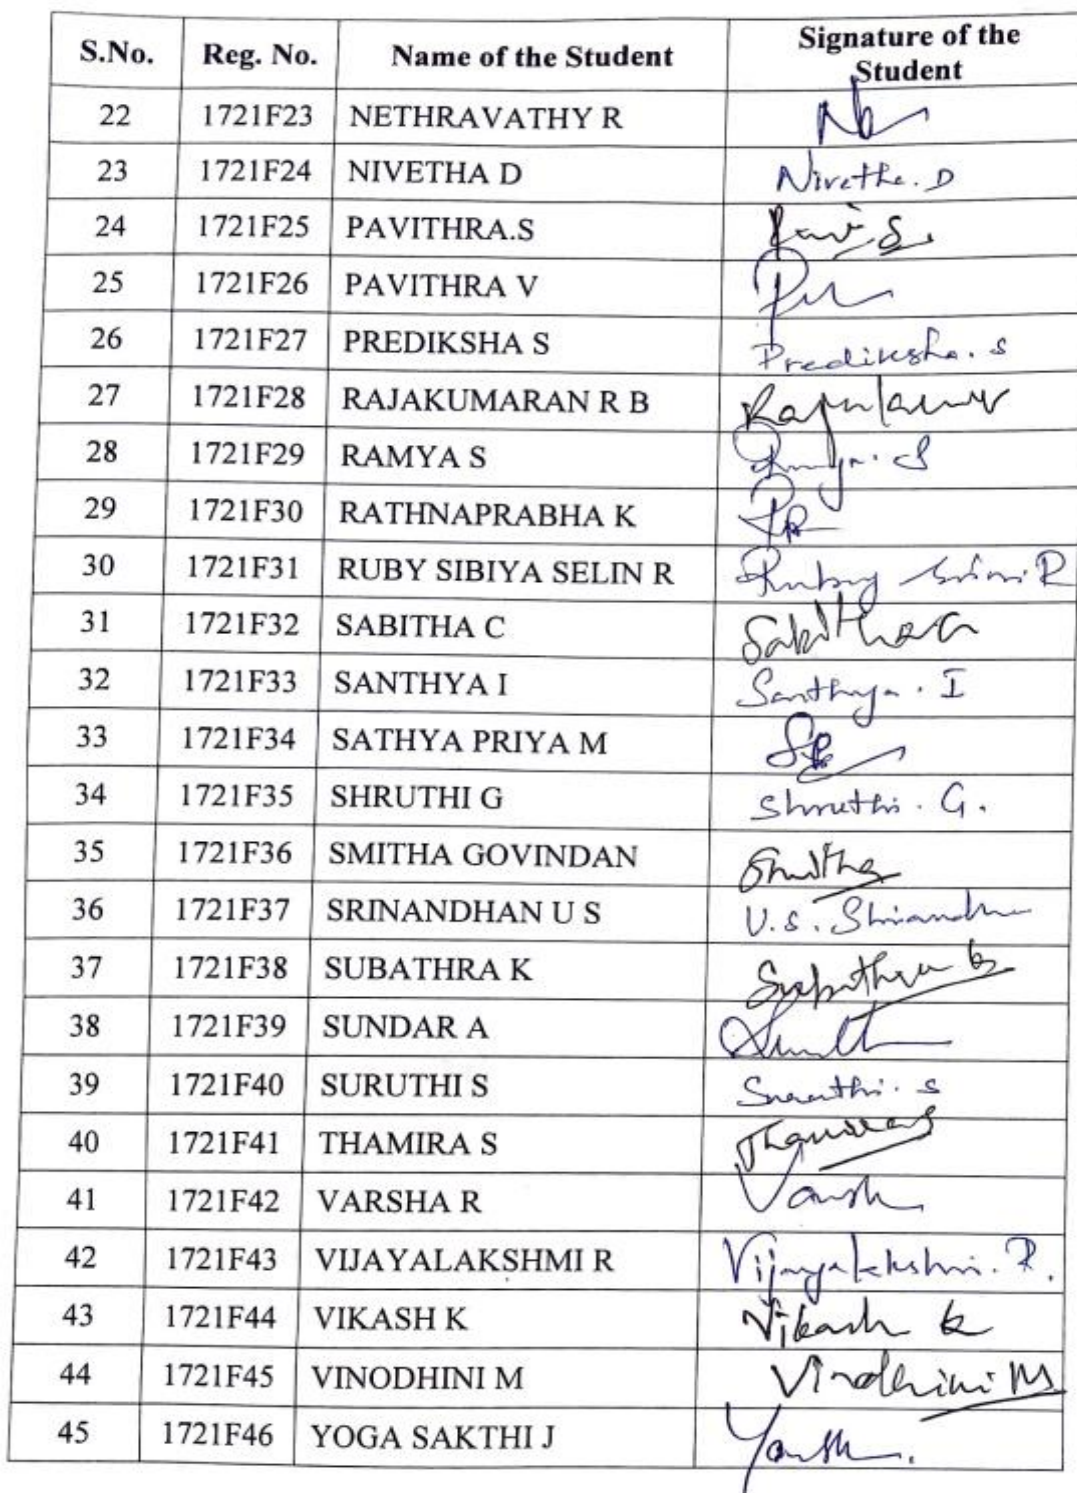 S.No. Reg. No. Name of the Student Signature of the Student
22 1721F23 NETHRAVATHY R
23 1721F24 NIVETHA D Nivetha. D
24 1721F25 PAVITHRA.S Pavi S.
25 1721F26 PAVITHRA V
26 1721F27 PREDIKSHA S Prediksha. s
27 1721F28 RAJAKUMARAN R B
28 1721F29 RAMYA S Ramya. S
29 1721F30 RATHNAPRABHA K
30 1721F31 RUBY SIBIYA SELIN R Ruby R
31 1721F32 SABITHA C Sabitha C
32 1721F33 SANTHYA I Santhya. I
33 1721F34 SATHYA PRIYA M
34 1721F35 SHRUTHI G Shruthi. G.
35 1721F36 SMITHA GOVINDAN Smitha
36 1721F37 SRINANDHAN U S U.S.
37 1721F38 SUBATHRA K Subathra k
38 1721F39 SUNDAR A
39 1721F40 SURUTHI S Suruthi. s
40 1721F41 THAMIRA S
41 1721F42 VARSHA R Varsh
42 1721F43 VIJAYALAKSHMI R Vijayalakshmi. R.
43 1721F44 VIKASH K Vikash k
44 1721F45 VINODHINI M Vinodhini M
45 1721F46 YOGA SAKTHI J